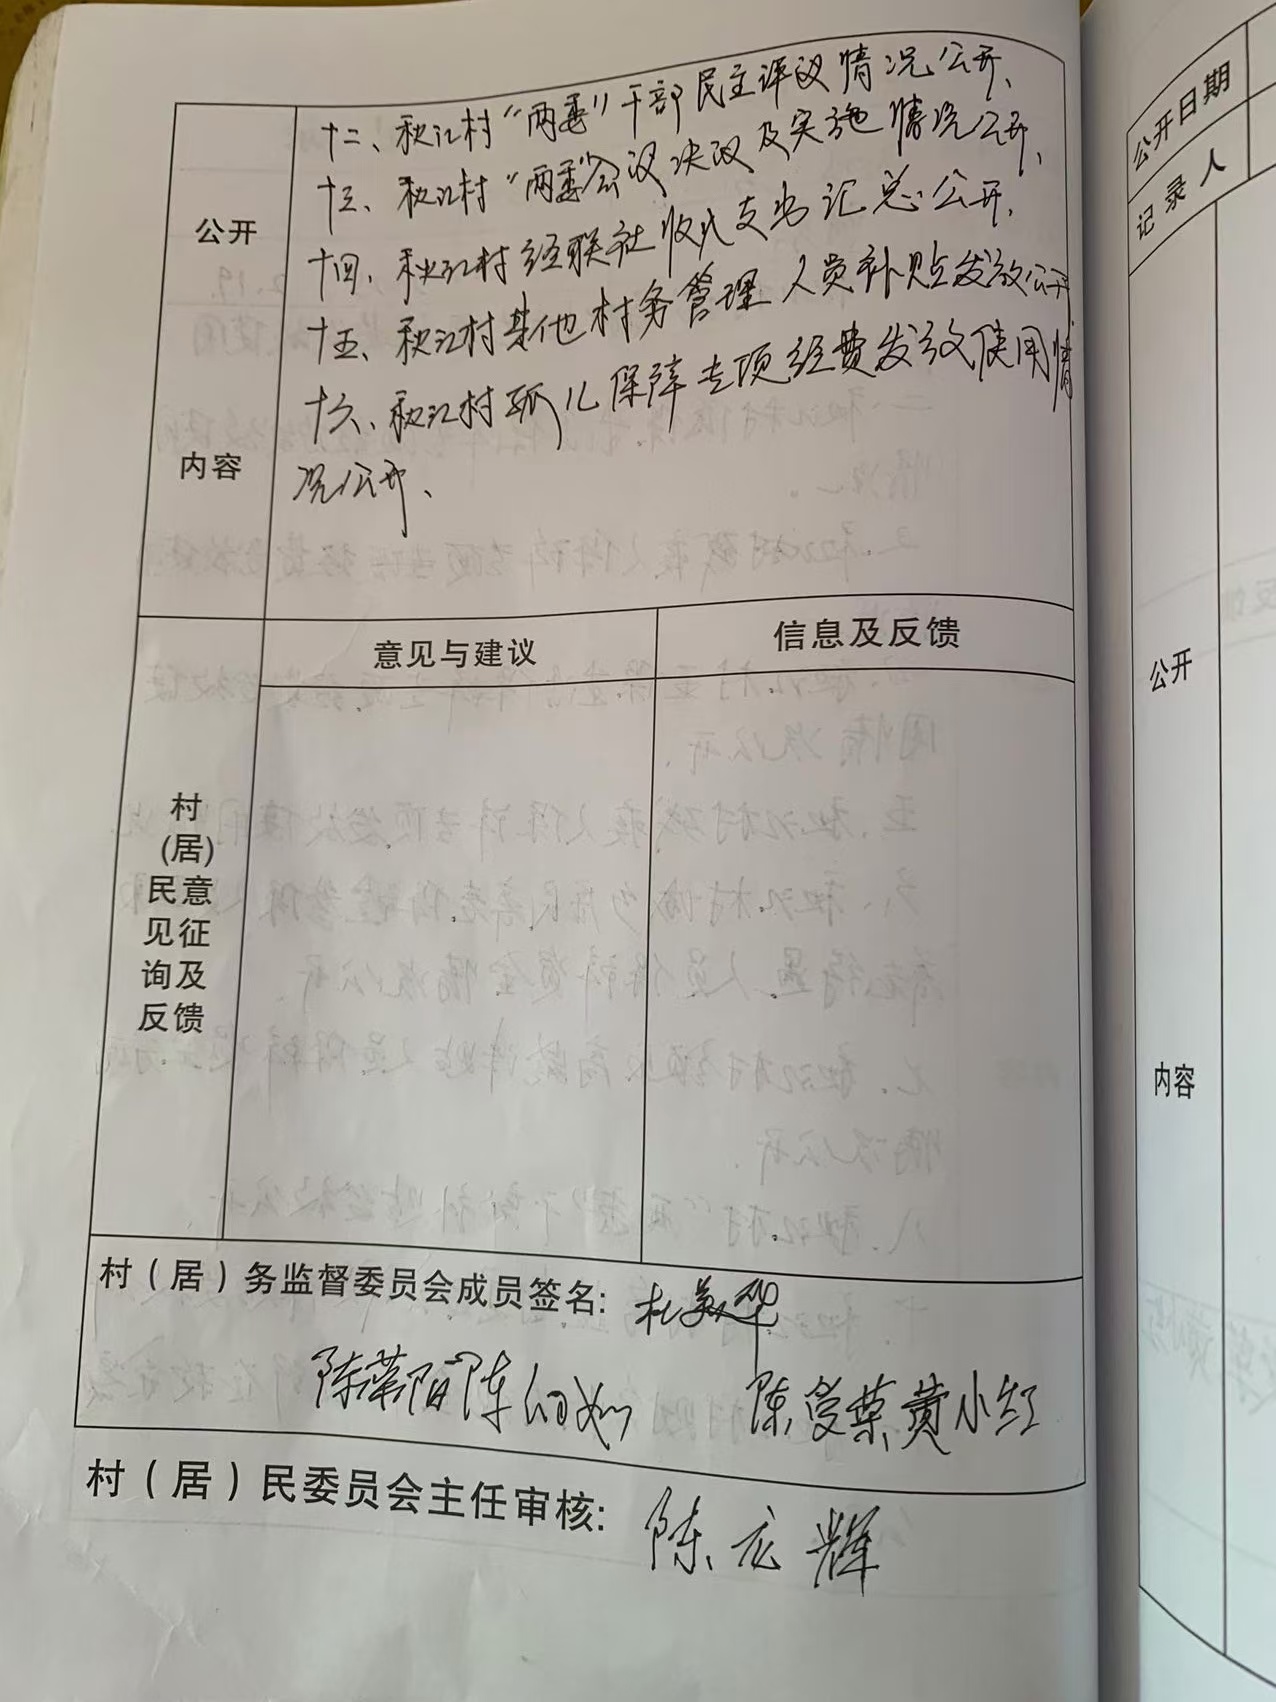 十二、秋江村“两委”干部民主评议情况公开、
十三、秋江村“两委”会议决议及实施情况公开、
十四、秋江村经联社收入支出汇总公开、
十五、秋江村其他村务管理人员补贴发放公开
十六、秋江村孤儿保障专项经费发放使用情
况公开、
公开
内容
意见与建议
信息及反馈
村
(居)
民意
见征
询及
反馈
村（居）务监督委员会成员签名：杜美华
陈 陈 陈 荣 黄小红
村（居）民委员会主任审核：陈 辉
公开日期
记录人
公开
内容